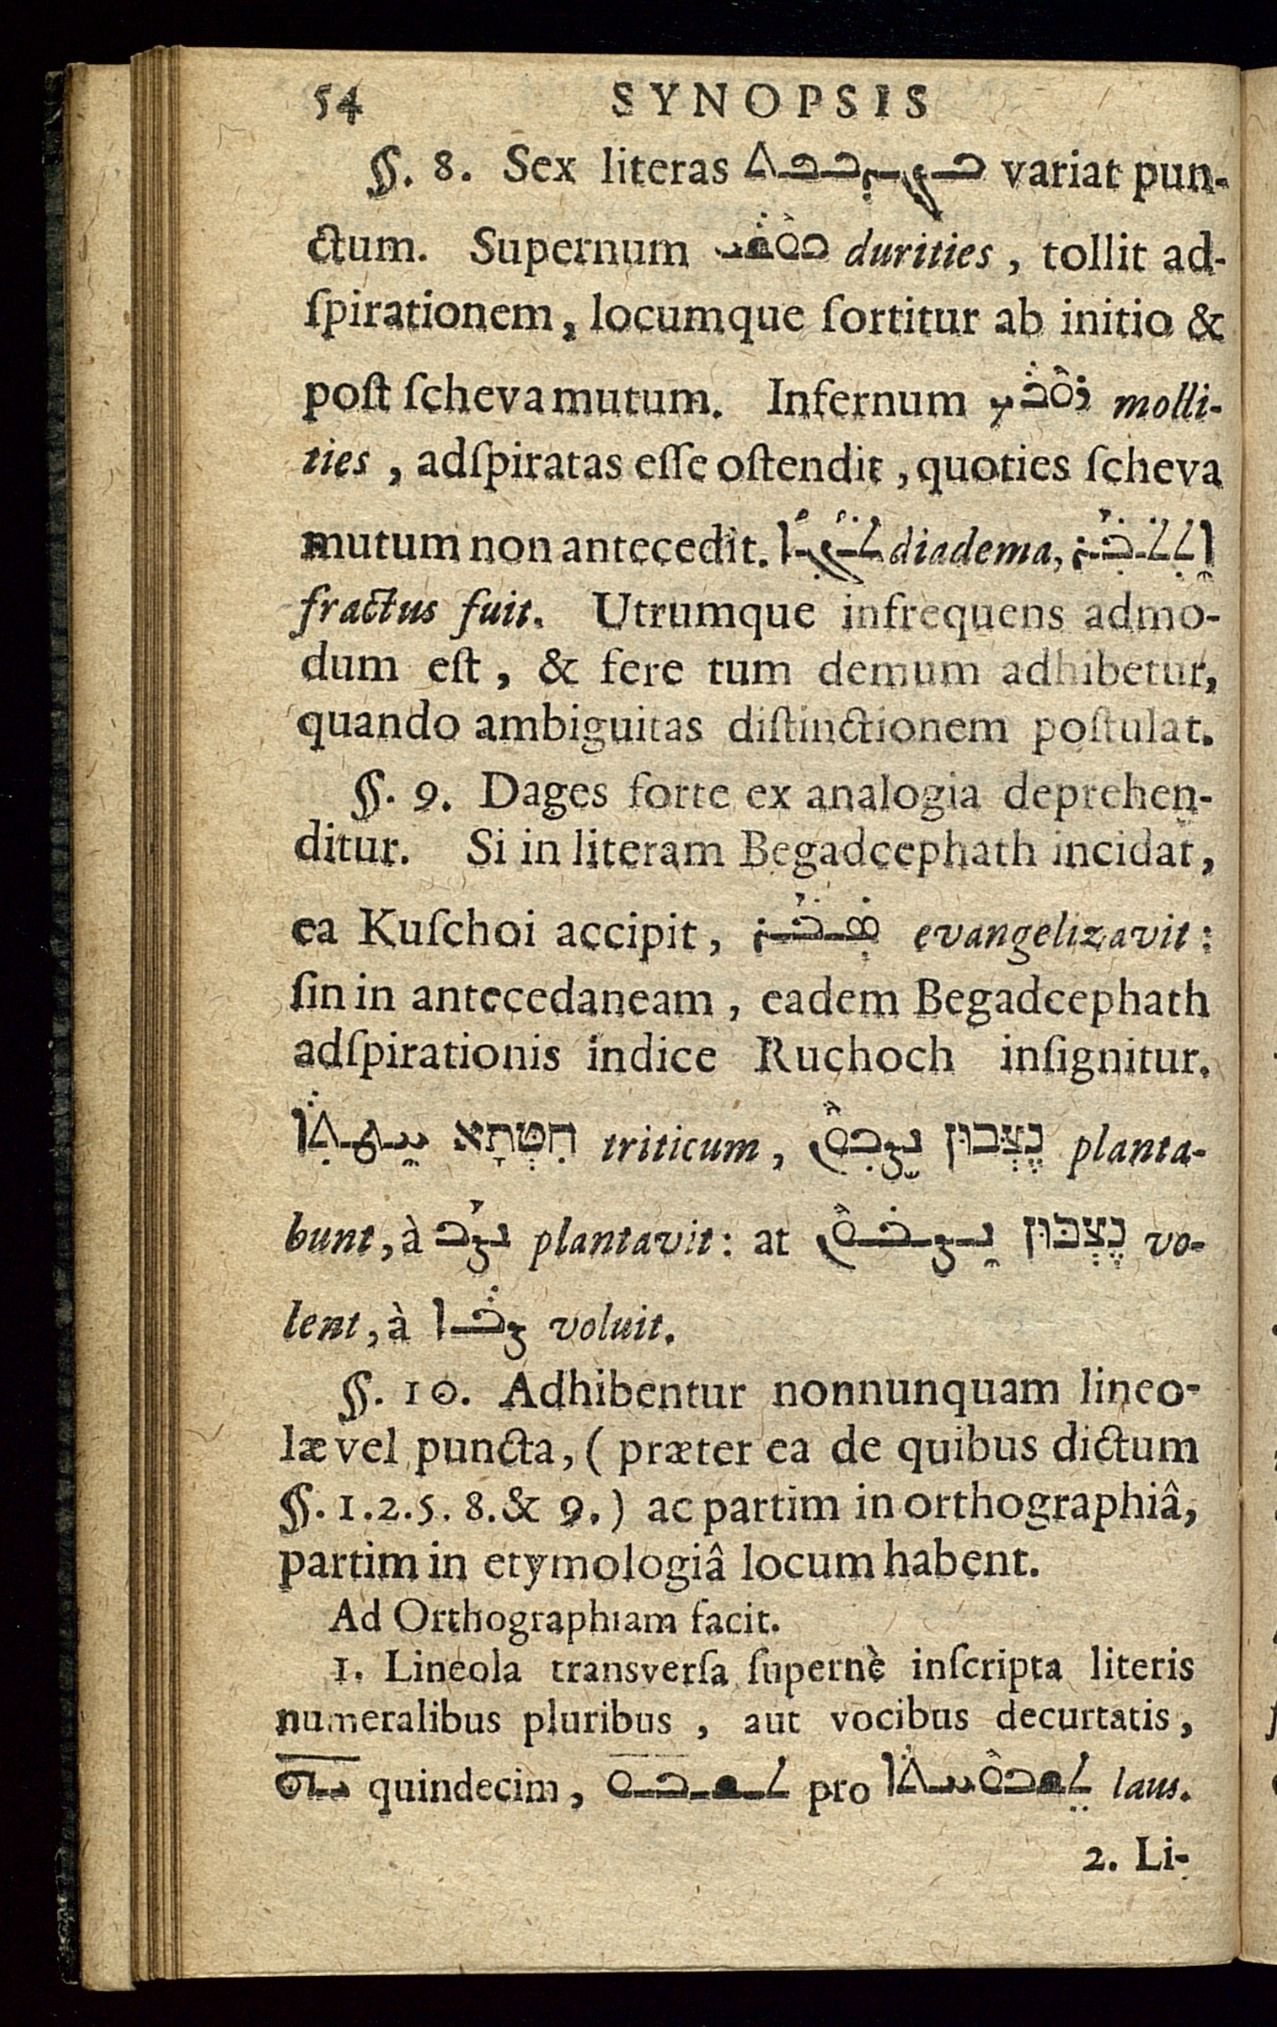 54 SYNOPSIS
§. 8. Sex literas ܒܓܕܟܦܬ variat pun-
ctum. Supernum ܩܘܫܝ durities, tollit ad-
ſpirationem, locumque ſortitur ab initio &
poſt ſcheva mutum. Infernum ܪܘܟܟ molli-
ties, adſpiratas eſſe oſtendit, quoties ſcheva
mutum non antecedit. diadema, ܐܬܬܒܪ
fractus fuit. Utrumque infrequens admo-
dum eſt, & fere tum demum adhibetur,
quando ambiguitas diſtinctionem poſtulat.
§. 9. Dages forte ex analogia deprehen-
ditur. Si in literam Begadcephath incidat,
ea Kuſchoi accipit, ܣܒܪ evangelizavit:
ſin in antecedaneam, eadem Begadcephath
adſpirationis indice Ruchoch inſignitur.
ܚܛܬܐ חִטְּתָא triticum, ܢܨܒܘܢ נֶצְּבוּן planta-
bunt, à ܢܨܒ plantavit: at ܢܨܒܘܢ נֶצְבּוּן vo-
lent, à ܨܒܐ voluit.
§. 10. Adhibentur nonnunquam lineo-
læ vel puncta, (præter ea de quibus dictum
§. 1. 2. 5. 8. & 9.) ac partim in orthographiâ,
partim in etymologiâ locum habent.
Ad Orthographiam facit.
1. Lineola transverſa ſupernè inſcripta literis
numeralibus pluribus, aut vocibus decurtatis,
quindecim, ܬܫܒܘ pro ܬܫܒܘܚܬܐ laus.
2. Li-